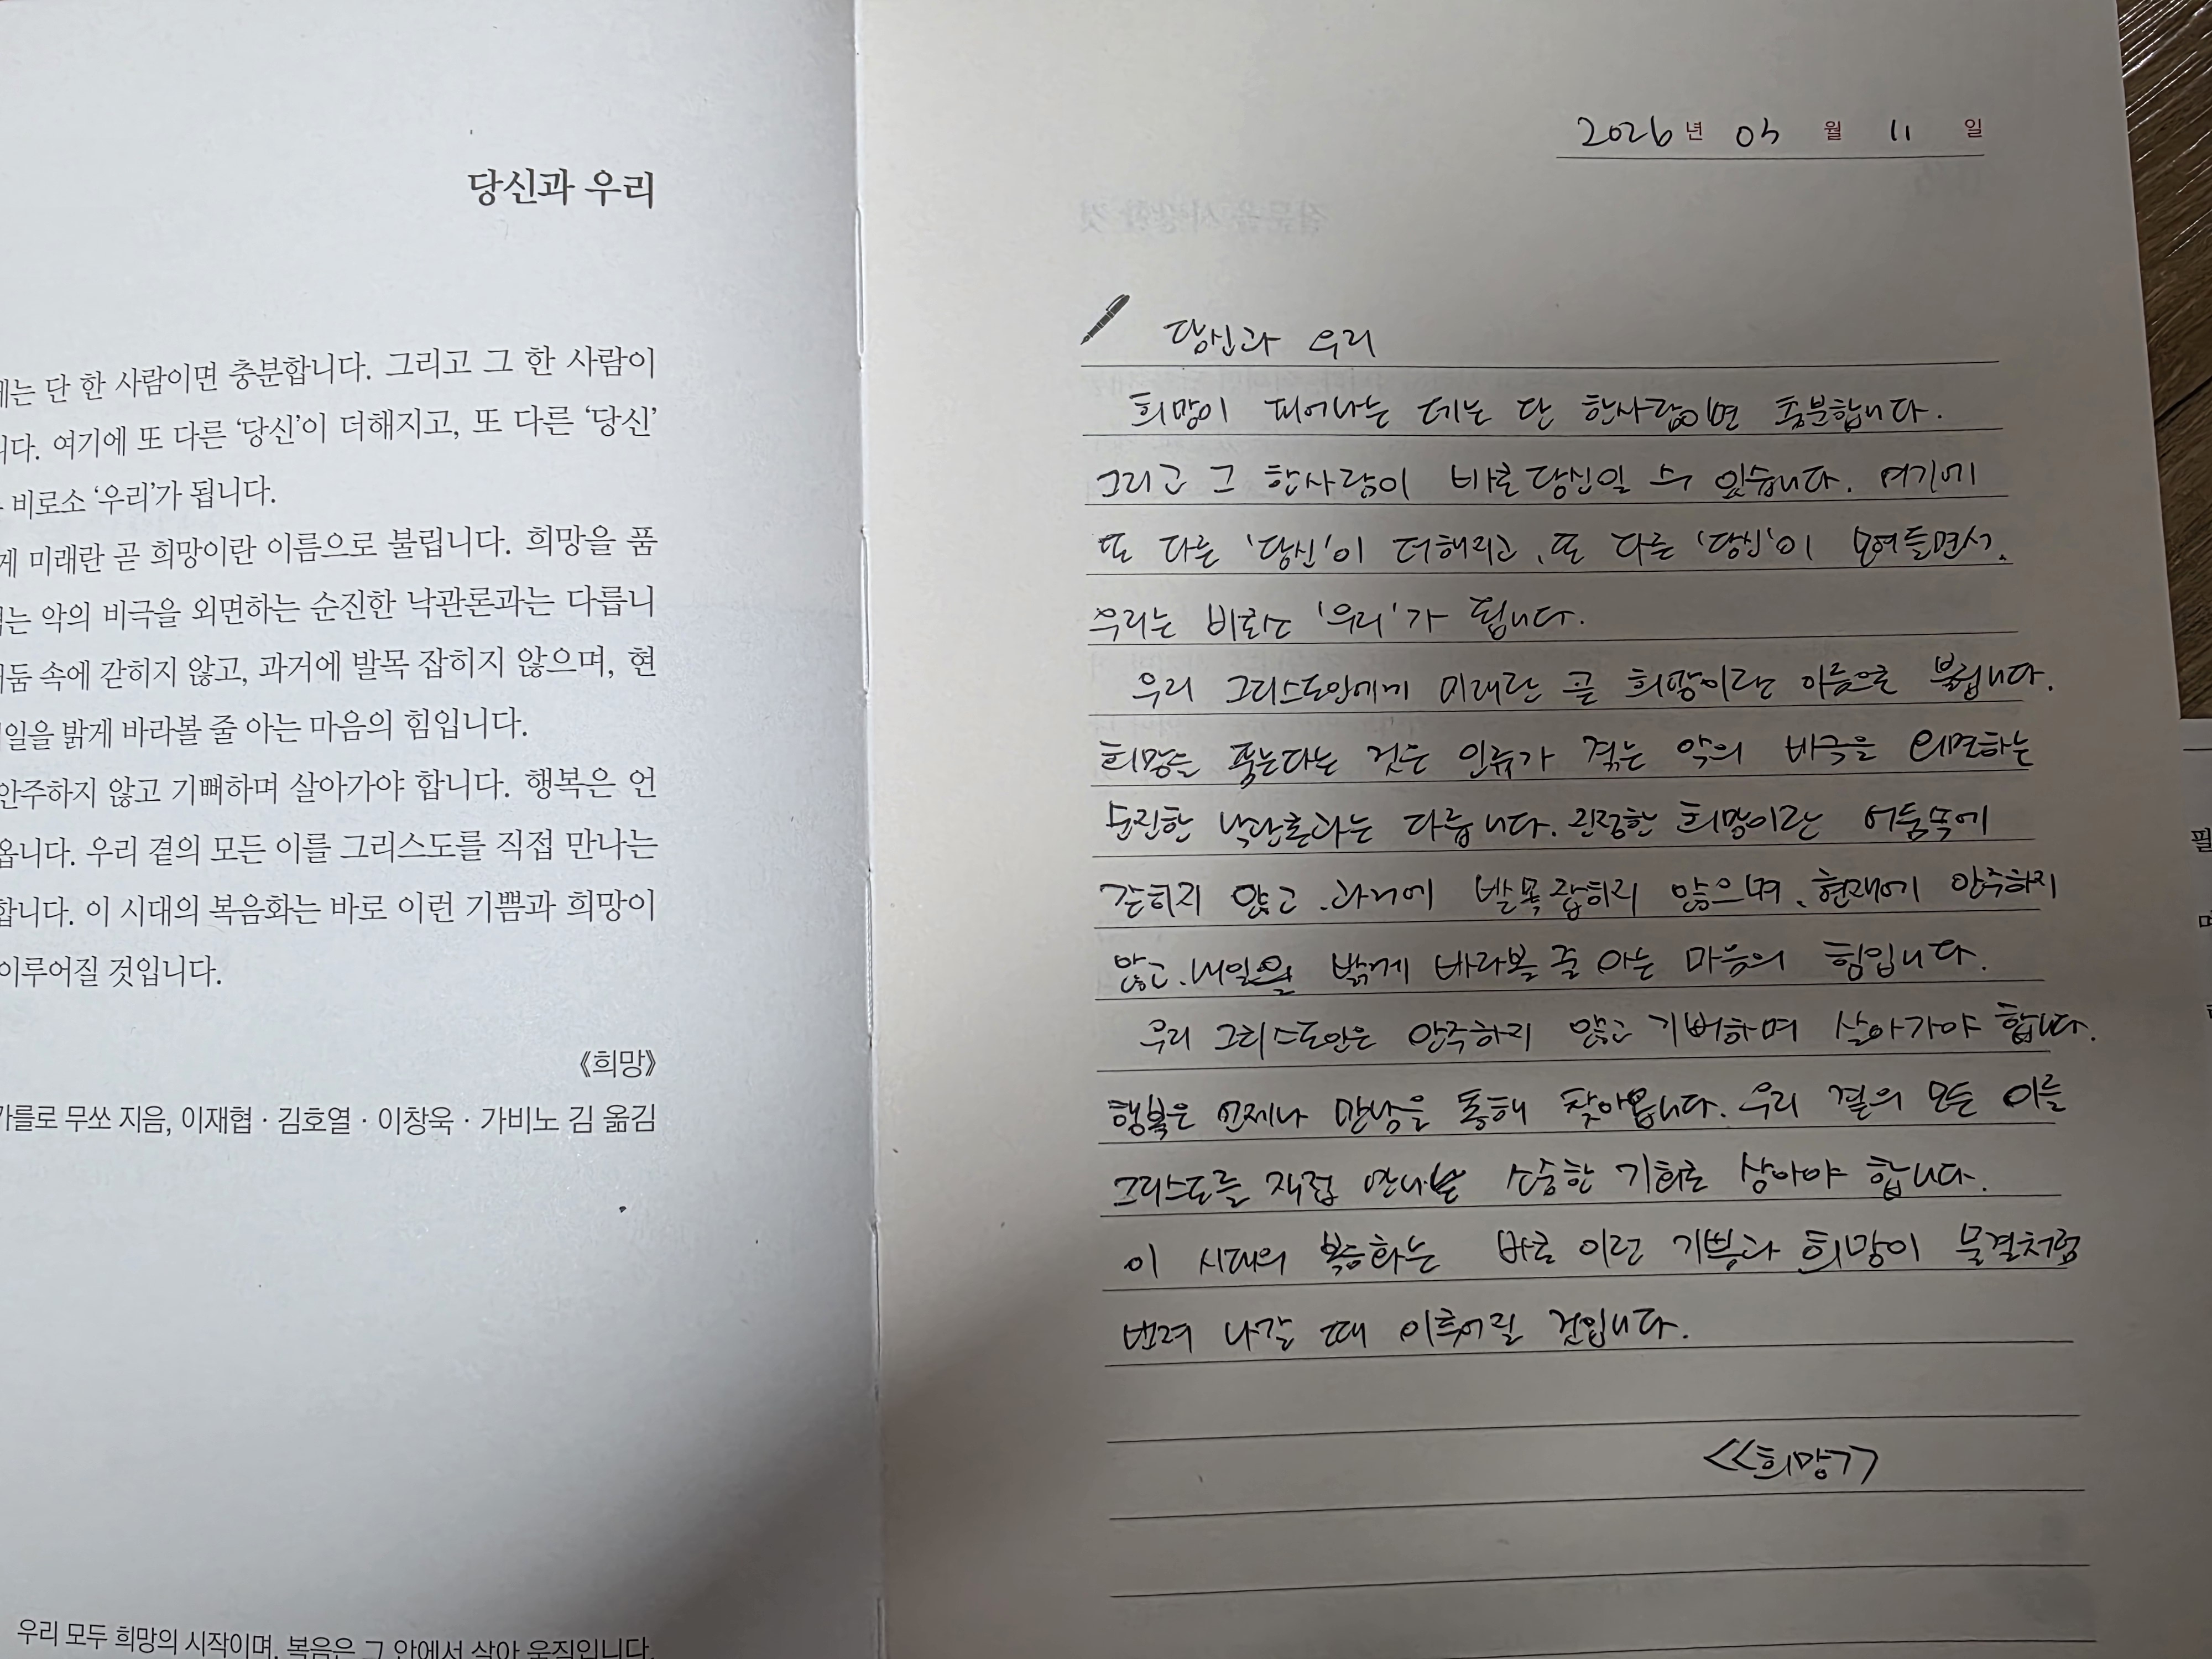 당신과 우리
는 단 한 사람이면 충분합니다. 그리고 그 한 사람이
니다. 여기에 또 다른 ‘당신’이 더해지고, 또 다른 ‘당신’
비로소 ‘우리’가 됩니다.
게 미래란 곧 희망이란 이름으로 불립니다. 희망을 품
는 악의 비극을 외면하는 순진한 낙관론과는 다릅니
둠 속에 갇히지 않고, 과거에 발목 잡히지 않으며, 현
일을 밝게 바라볼 줄 아는 마음의 힘입니다.
안주하지 않고 기뻐하며 살아가야 합니다. 행복은 언
옵니다. 우리 곁의 모든 이를 그리스도를 직접 만나는
합니다. 이 시대의 복음화는 바로 이런 기쁨과 희망이
이루어질 것입니다.
《희망》
카를로 무쏘 지음, 이재협 · 김호열 · 이창욱 · 가비노 김 옮김
우리 모두 희망의 시작이며, 복음은 그 안에서 살아 움직입니다.
2026년 03월 11일
당신과 우리
희망이 피어나는 데는 단 한사람이면 충분합니다.
그리고 그 한사람이 바로 당신일 수 있습니다. 여기에
또 다른 ‘당신’이 더해지고, 또 다른 ‘당신’이 모여들면서,
우리는 비로소 ‘우리’가 됩니다.
우리 그리스도인에게 미래란 곧 희망이란 이름으로 불립니다.
희망을 품는다는 것은 인류가 겪는 악의 비극을 외면하는
순진한 낙관론과는 다릅니다. 진정한 희망이란 어둠속에
갇히지 않고, 과거에 발목잡히지 않으며, 현재에 안주하지
않고, 내일을 밝게 바라볼 줄 아는 마음의 힘입니다.
우리 그리스도인은 안주하지 않고 기뻐하며 살아가야 합니다.
행복은 언제나 만남을 통해 찾아옵니다. 우리 곁의 모든 이를
그리스도를 직접 만나는 소중한 기회로 삼아야 합니다.
이 시대의 복음화는 바로 이런 기쁨과 희망이 물결처럼
번져 나갈 때 이루어질 것입니다.
<<희망>>
필